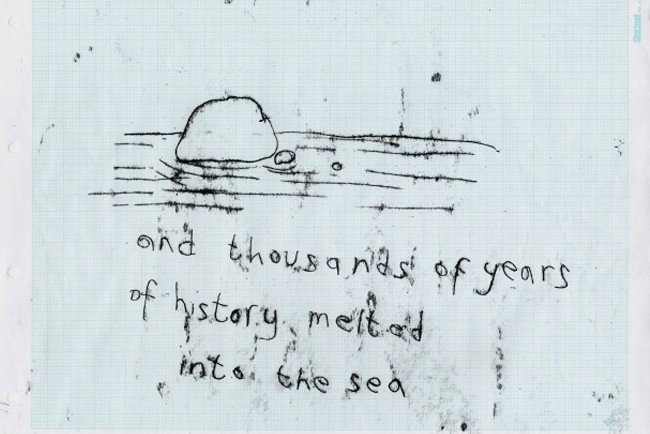 and thousands of years
of history melted
into the sea
Chartwell